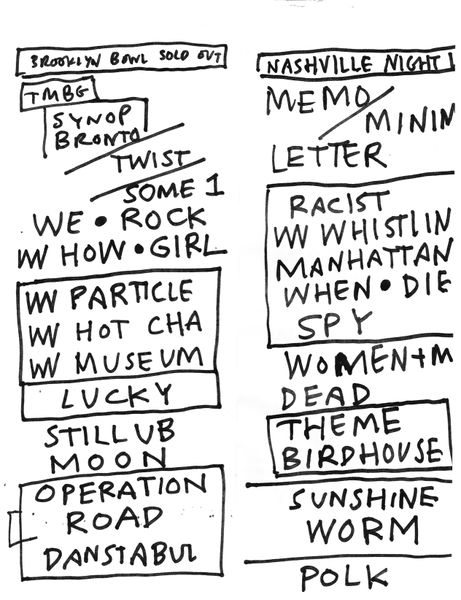 BROOKLYN BOWL SOLD OUT
TMBG
SYNOP
BRONTO
TWIST
SOME 1
WE • ROCK
W/ HOW • GIRL
W/ PARTICLE
W/ HOT CHA
W/ MUSEUM
LUCKY
STILLUB
MOON
OPERATION
ROAD
DANSTABUL
NASHVILLE NIGHT 1
MEMO
MININ
LETTER
RACIST
W/ WHISTLIN
MANHATTAN
WHEN • DIE
SPY
WOMEN+M
DEAD
THEME
BIRDHOUSE
SUNSHINE
WORM
POLK